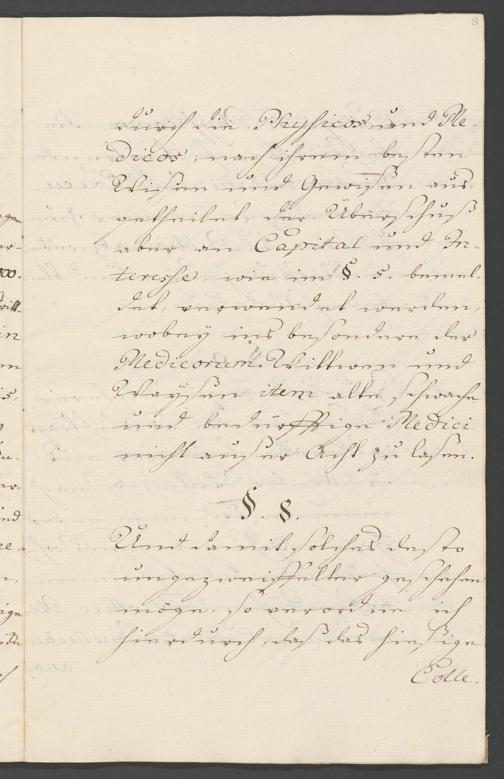 durch die Physicos und Me-
dicos, nach ihrem besten
Wißen und Gewißen aus-
getheilet, der Überschuß
aber an Capital und In-
teresse, wie im §. 5. bemel-
det, verwendet werden,
wobey ins besondere der
Medicorum Wittwen und
Waysen, item alte schwache
und bedürfftige Medici
nicht außer Acht zu laßen.
§. 8.
Und damit solches desto
ungezweiffelter geschehen
möge, so verordne ich
hierdurch, daß das hiesige
Colle-